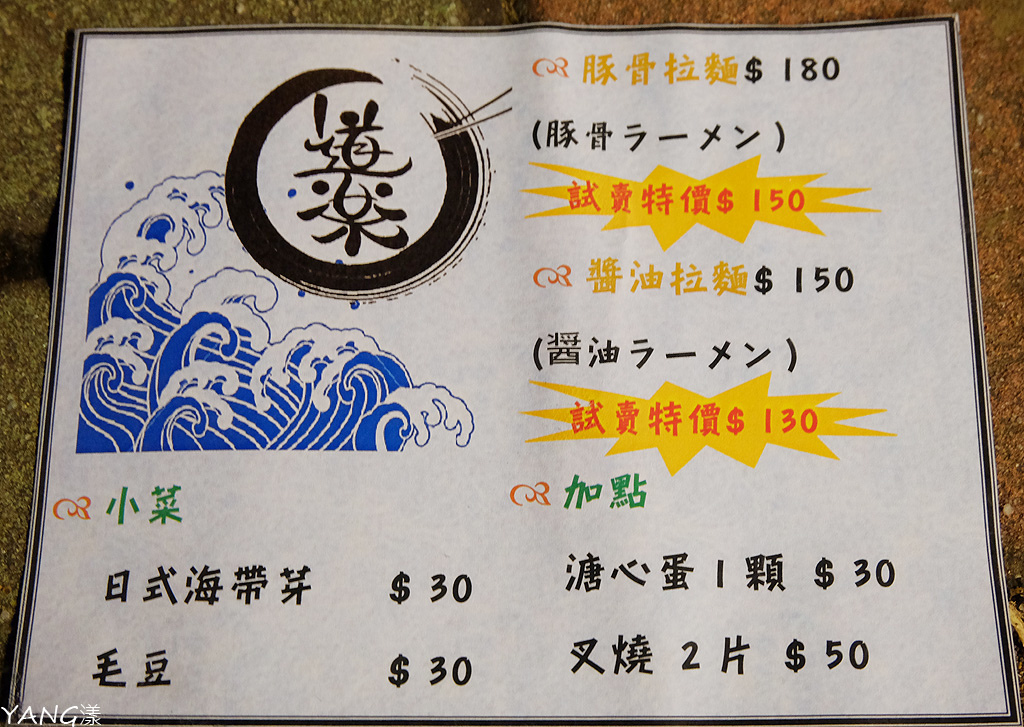 道楽
豚骨拉麵$ 180
(豚骨ラーメン)
試賣特價$ 150
醬油拉麵$ 150
(醤油ラーメン)
試賣特價$ 130
小菜
日式海帶芽 $ 30
毛豆 $ 30
加點
溏心蛋 1 顆 $ 30
叉燒 2 片 $ 50
YANG漾